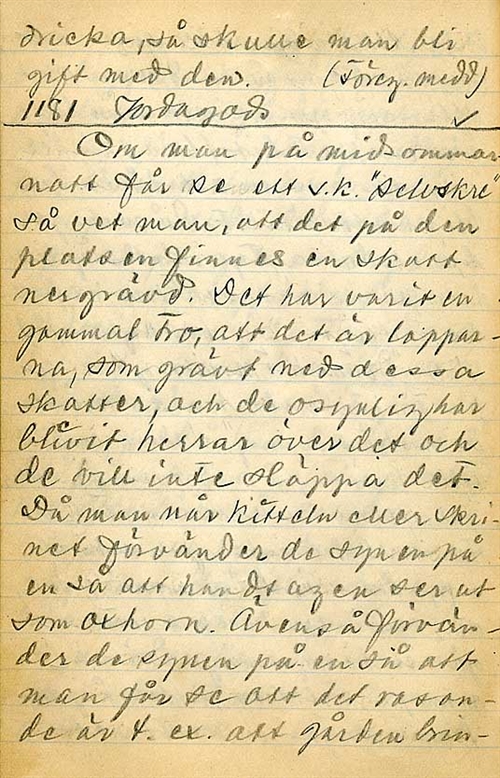 dricka, så skulle man bli
gift med den. (Föreg. medd)
1181 Jordagods ✓
Om man på midsommar
natt får se ett s.k. "Selvskre"
så vet man, att det på den
platsen finnes en skatt
nergrävd. Det har varit en
gammal tro, att det är lappar-
na, som grävt ned dessa
skatter, och de osynliga har
blivit herrar över det och
de vill inte släppa det.
Då man når kitteln eller skri-
net förvänder de synen på
en så att handtagen ser ut
som oxhorn. Även så förvän-
der de synen på en så att
man får se att det rasan-
de är t. ex. att gården brin-